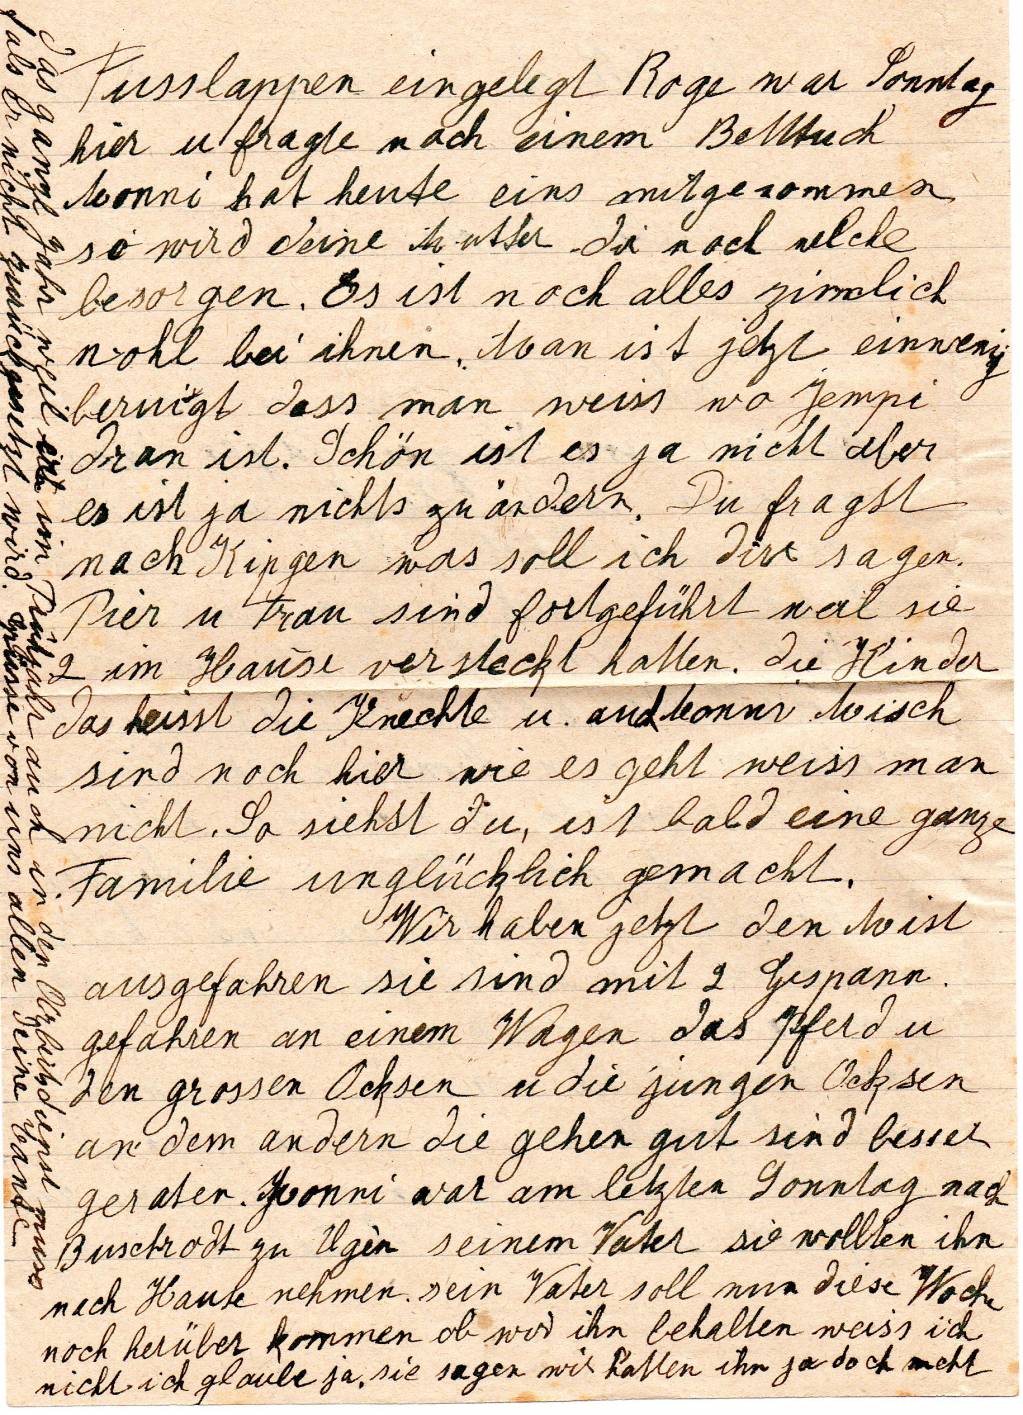 Fusslappen eingelegt Roge war Sonntag
hier u fragte nach einem Betttuch
Monni hat heute eins mitgenommen
so wird deine Mutter dir noch welche
besorgen. Es ist noch alles zimlich
wohl bei ihnen. Man ist jetzt einwenig
beruigt dass man weiss wo Jempi
dran ist. Schön ist es ja nicht aber
es ist ja nichts zu ändern. Du fragst
nach Kipgen was soll ich dir sagen.
Pier u Frau sind fortgeführt weil sie
2 im Hause versteckt hatten. die Kinder
das heisst die Knechte u. auch Monni Misch
sind noch hier wie es geht weiss man
nicht. So siehst du, ist bald eine ganze
Familie unglücklich gemacht.
Wir haben jetzt den Mist
ausgefahren sie sind mit 2 Gespann.
gefahren an einem Wagen das Pferd u
den grossen Ochsen u die jungen Ochsen
an dem andern die gehen gut sind besser
geraten. Monni war am letzten Sonntag nach
Buschrodt zu Ugèn seinem Vater sie wollten ihn
nach Hause nehmen. sein Vater soll nun diese Woche
noch herüber kommen ob wir ihn behalten weiss ich
nicht ich glaube ja. sie sagen wir hatten ihn ja doch nicht
das ganze Jahr weil er im Frühjahr auch in den Arbeitsdienst muss
fals Er nicht zurückgesetzt wird. Grüsse von uns allen Deine Tante